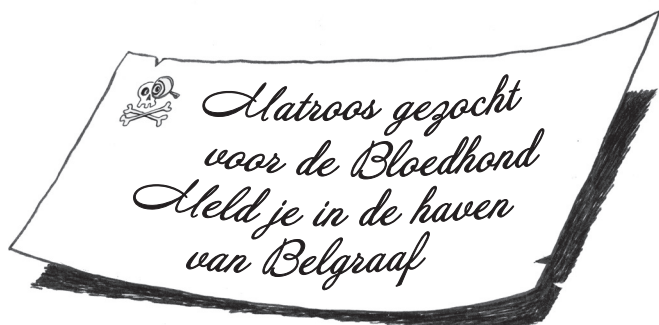 Matroos gezocht
voor de Bloedhond
Meld je in de haven
van Belgraaf